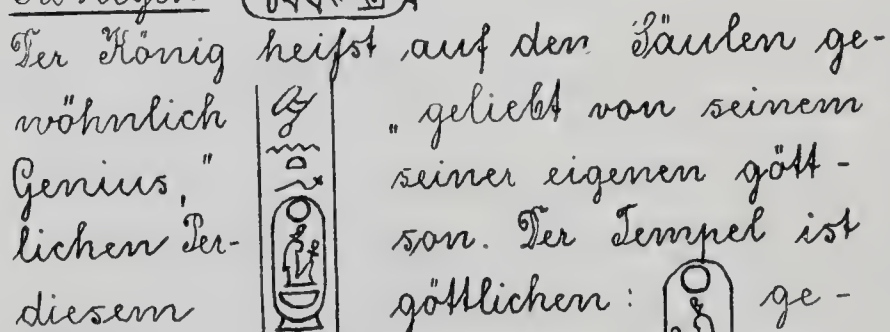 Der König heißt auf den Säulen ge-
wöhnlich „geliebt von seinem
Genius," seiner eigenen gött-
lichen Per- son. Der Tempel ist
diesem göttlichen: ge-